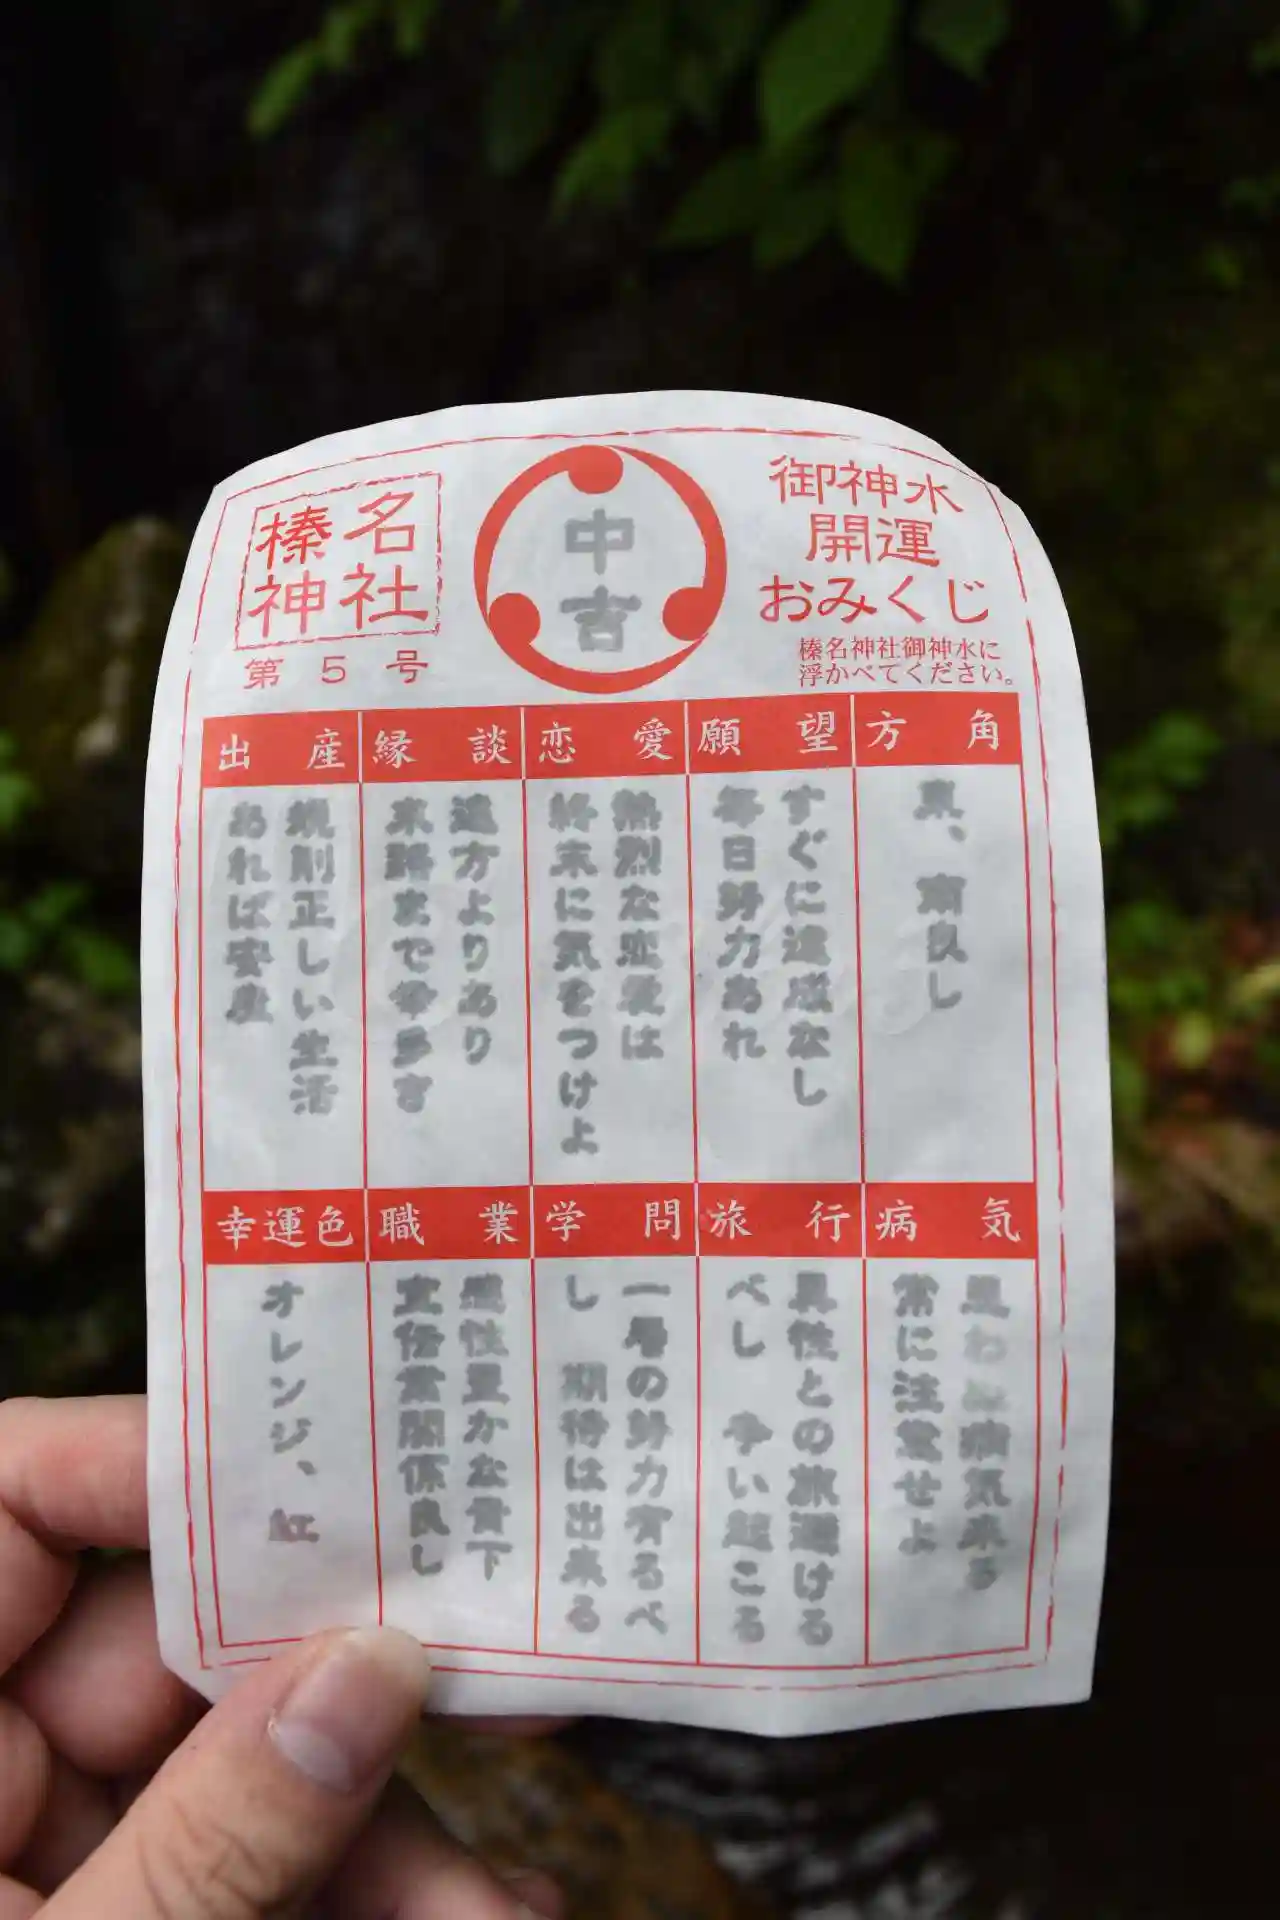 御神水
開運
おみくじ
榛名神社御神水に
浮かべてください。
中吉
榛名
神社
第5号
方角
東、南良し
願望
すぐに達成なし
毎日努力あれ
恋愛
熱烈な恋愛は
終末に気をつけよ
縁談
遠方よりあり
末路まで幸多き
出産
規則正しい生活
あれば安産
病気
思わぬ病気来る
常に注意せよ
旅行
異性との旅避ける
べし 争い起こる
学問
一層の努力有るべ
し 期待は出来る
職業
感性豊かな骨下
宣伝業関係良し
幸運色
オレンジ、紅